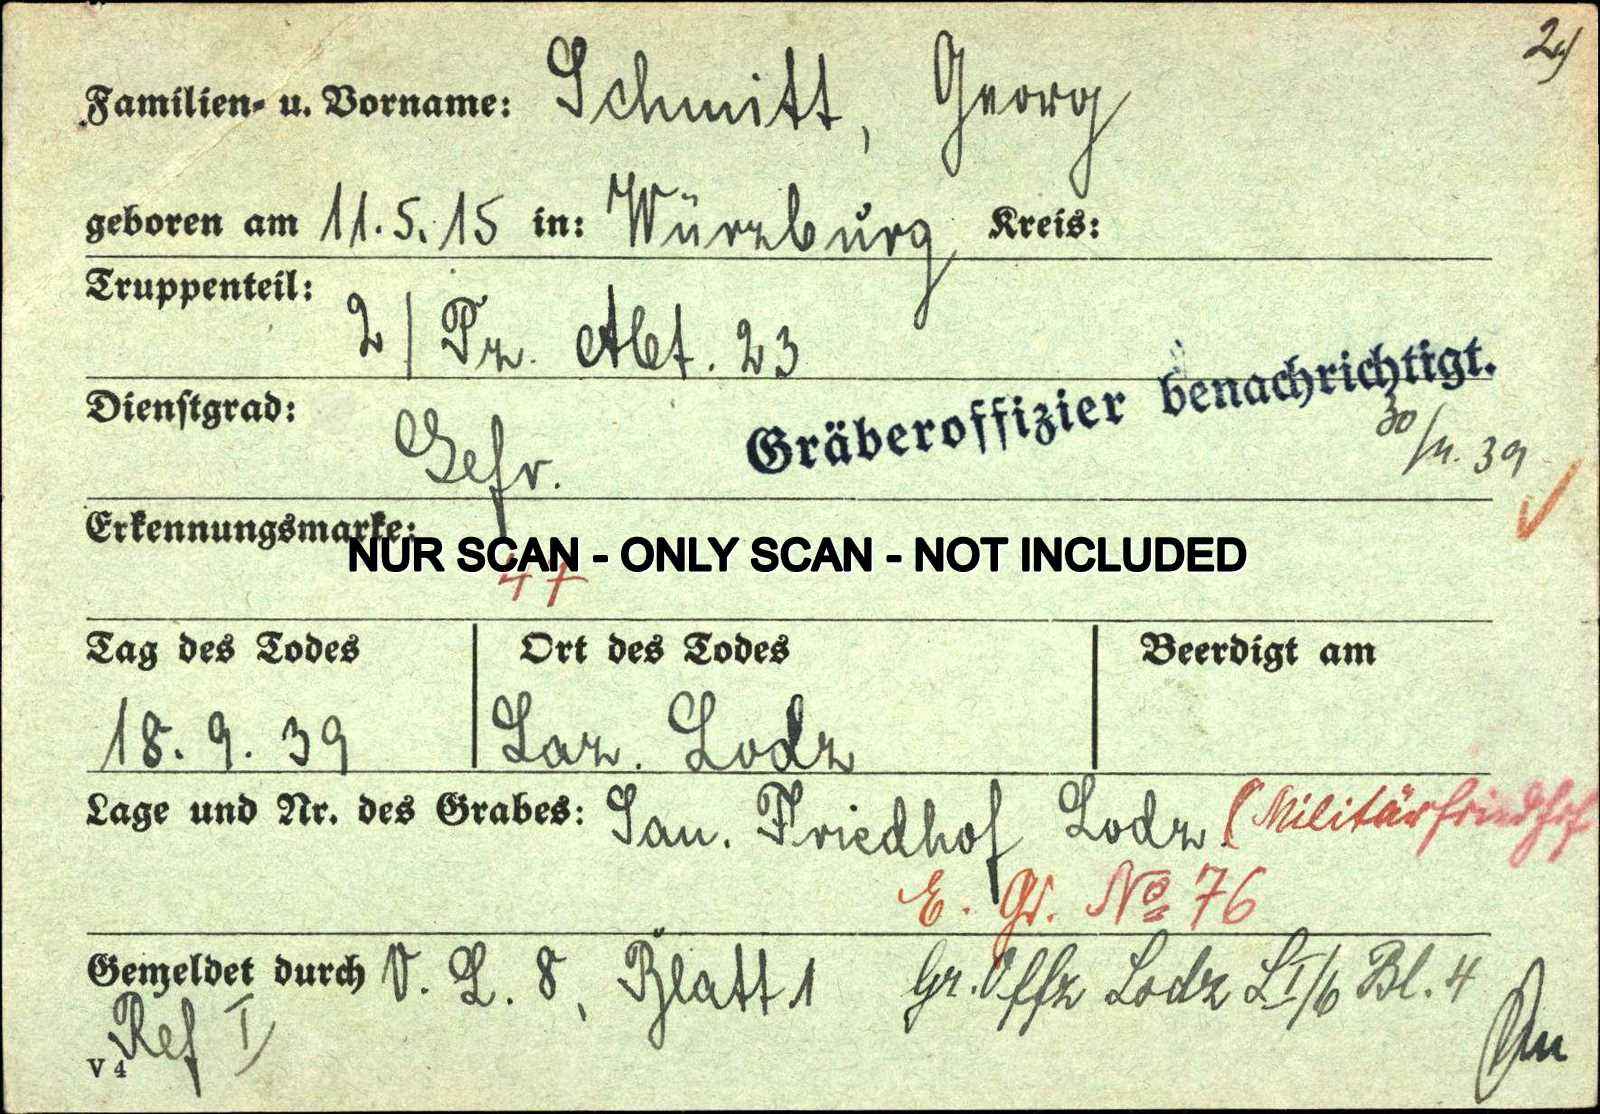 2)
Familien- u. Vorname: Schmitt, Georg
geboren am 11.5.15 in: Würzburg Kreis:
Truppenteil: 2/Pz. Abt. 23
Gräberoffizier benachrichtigt.
30/11. 39
Dienstgrad: Gefr.
Erkennungsmarke:
NUR SCAN - ONLY SCAN - NOT INCLUDED
47
Tag des Todes Ort des Todes Beerdigt am
18. 9. 39 Laz. Lodz
Lage und Nr. des Grabes: San. Friedhof Lodz. (Militärfriedhof
E. Gr. No 76
Gemeldet durch V. L. 8, Blatt 1 Gr. Offz Lodz L I/6 Bl. 4
Ref I
V 4